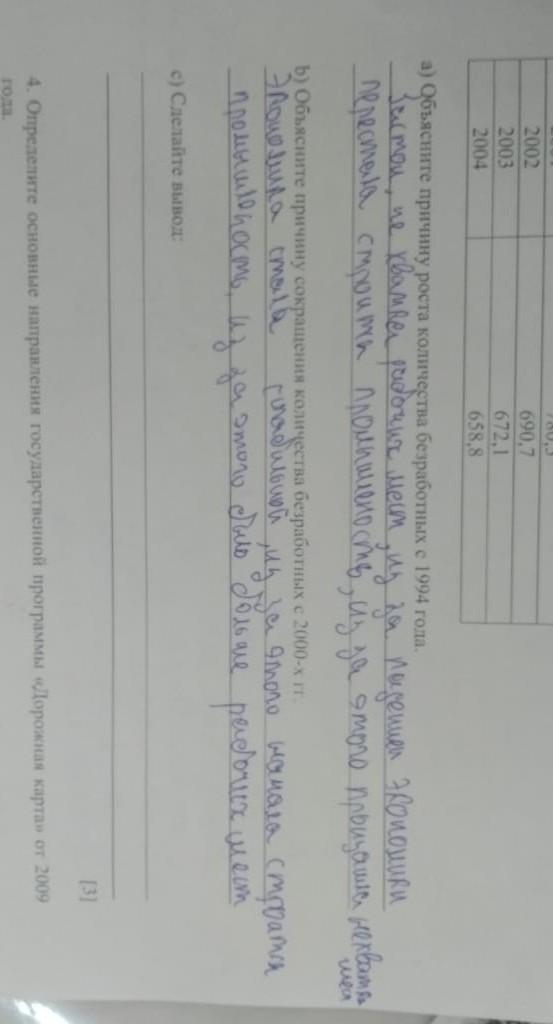 2002 690,7
2003 672,1
2004 658,8
а) Объясните причину роста количества безработных с 1994 года.
Застой, не хватка рабочих мест, из за падении экономики
перестала строится промышленость, из за этого
b) Объясните причину сокращения количества безработных с 2000-х гг.
Экономика стала стабильной, из за этого начала строится
промышленость, из за этого было больше рабочих мест
c) Сделайте вывод:
[3]
4. Определите основные направления государственной программы «Дорожная карта» от 2009
года.